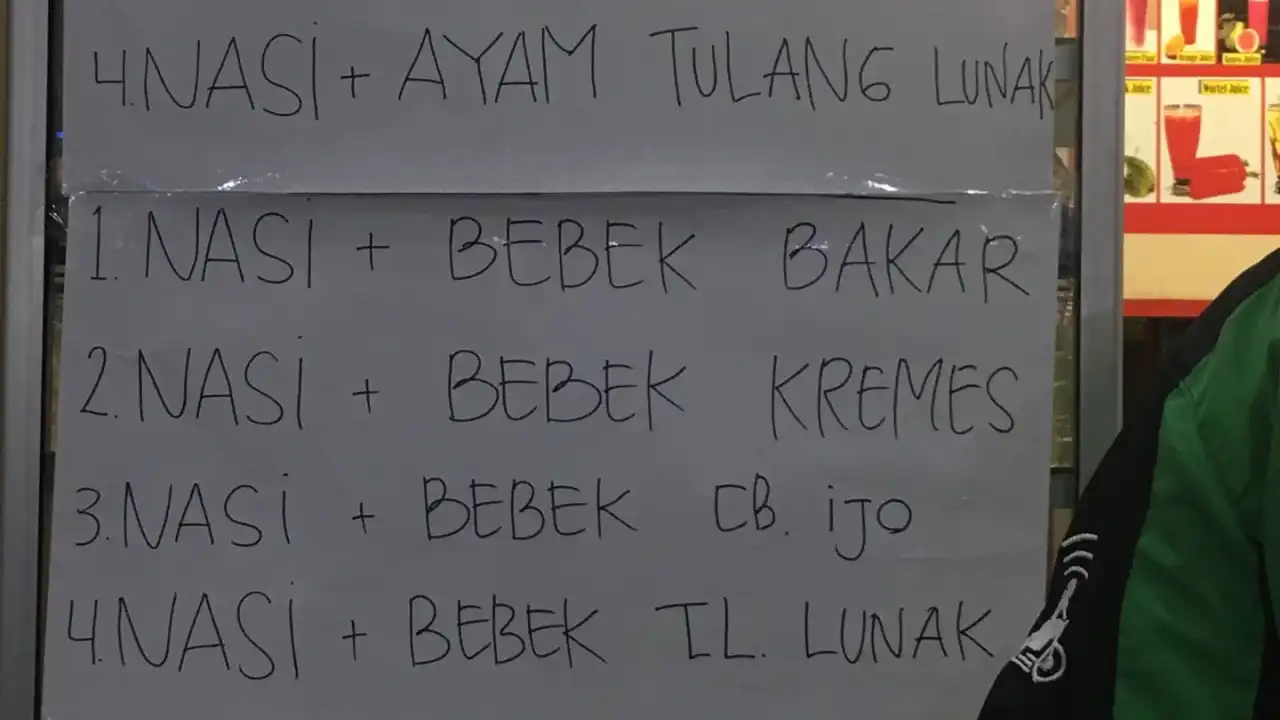 4. NASI + AYAM TULANG LUNAK
1. NASI + BEBEK BAKAR
2. NASI + BEBEK KREMES
3. NASI + BEBEK CB. IJO
4. NASI + BEBEK TL. LUNAK
Orange Juice
Guava Juice
Wortel Juice